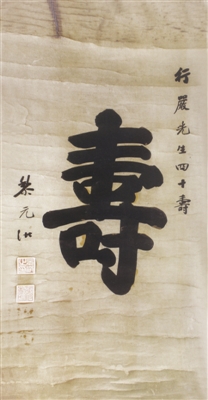 行嚴先生四十壽
壽
黎元洪